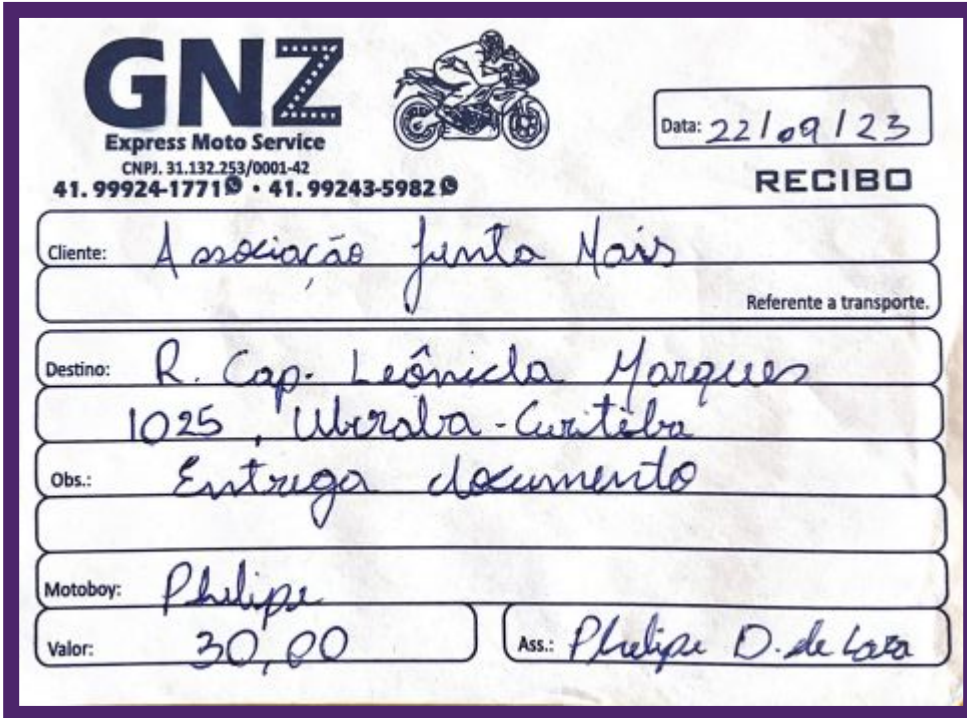 GNZ
Express Moto Service
CNPJ. 31.132.253/0001-42
41. 99924-1771 • 41. 99243-5982
Data: 22/09/23
RECIBO
Cliente: Associação Junta Mais
Referente a transporte.
Destino: R. Cap. Leônida Marques
1025, Uberaba - Curitiba
Obs.: Entrega documento
Motoboy: Phelipe
Valor: 30,00
Ass.: Phelipe D. de Lara